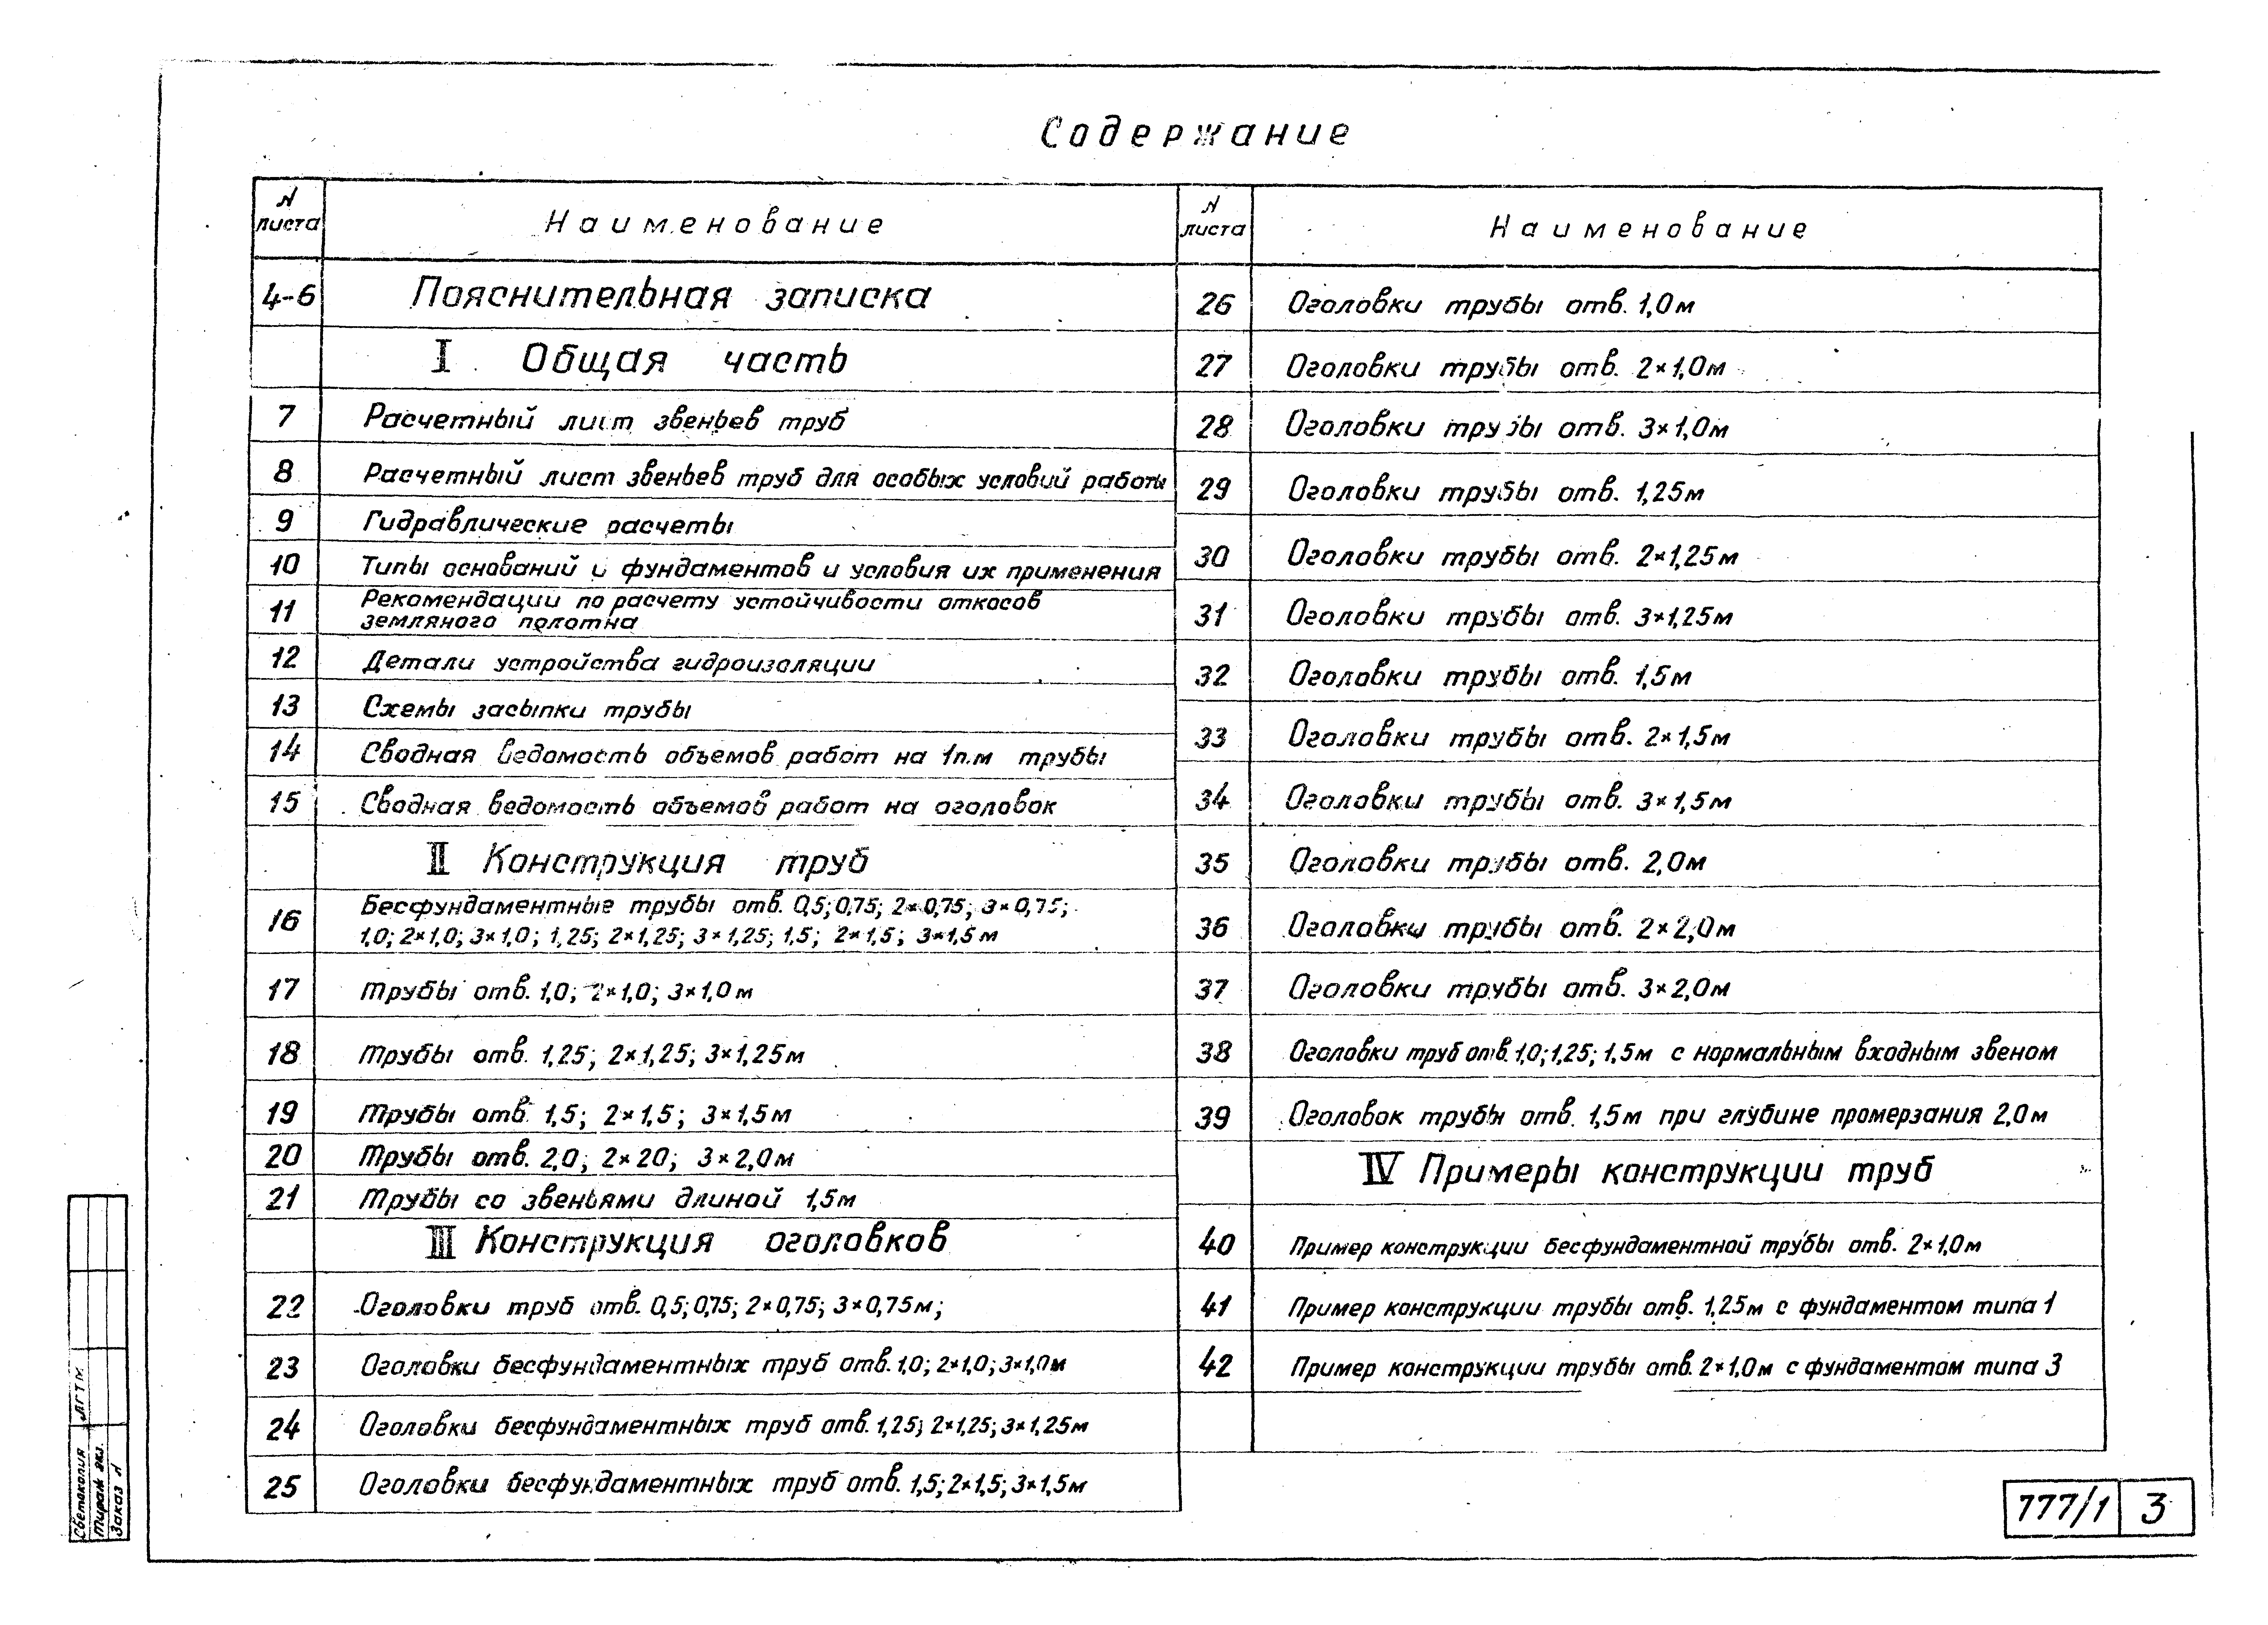 Содержание
N листа Наименование
4-6 Пояснительная записка
I Общая часть
7 Расчетный лист звеньев труб
8 Расчетный лист звеньев труб для особых условий работы
9 Гидравлические расчеты
10 Типы оснований и фундаментов и условия их применения
11 Рекомендации по расчету устойчивости откосов
земляного полотна
12 Детали устройства гидроизоляции
13 Схемы засыпки трубы
14 Сводная ведомость объемов работ на 1п.м трубы
15 Сводная ведомость объемов работ на оголовок
II Конструкция труб
16 Бесфундаментные трубы отв. 0,5; 0,75; 2×0,75; 3×0,75;
1,0; 2×1,0; 3×1,0; 1,25; 2×1,25; 3×1,25; 1,5; 2×1,5; 3×1,5м
17 Трубы отв. 1,0; 2×1,0; 3×1,0м
18 Трубы отв. 1,25; 2×1,25; 3×1,25м
19 Трубы отв. 1,5; 2×1,5; 3×1,5м
20 Трубы отв. 2,0; 2×20; 3×2,0м
21 Трубы со звеньями длиной 1,5м
III Конструкция оголовков
22 Оголовки труб отв. 0,5; 0,75; 2×0,75; 3×0,75м;
23 Оголовки бесфундаментных труб отв. 1,0; 2×1,0; 3×1,0м
24 Оголовки бесфундаментных труб отв. 1,25; 2×1,25; 3×1,25м
25 Оголовки бесфундаментных труб отв. 1,5; 2×1,5; 3×1,5м
N листа Наименование
26 Оголовки трубы отв. 1,0м
27 Оголовки трубы отв. 2×1,0м
28 Оголовки трубы отв. 3×1,0м
29 Оголовки трубы отв. 1,25м
30 Оголовки трубы отв. 2×1,25м
31 Оголовки трубы отв. 3×1,25м
32 Оголовки трубы отв. 1,5м
33 Оголовки трубы отв. 2×1,5м
34 Оголовки трубы отв. 3×1,5м
35 Оголовки трубы отв. 2,0м
36 Оголовки трубы отв. 2×2,0м
37 Оголовки трубы отв. 3×2,0м
38 Оголовки труб отв. 1,0; 1,25; 1,5м с нормальным входным звеном
39 Оголовок трубы отв. 1,5м при глубине промерзания 2,0м
IV Примеры конструкции труб
40 Пример конструкции бесфундаментной трубы отв. 2×1,0м
41 Пример конструкции трубы отв. 1,25м с фундаментом типа 1
42 Пример конструкции трубы отв. 2×1,0м с фундаментом типа 3
777/1 3
Светокопия ЛГТМ
Тираж экз.
Заказ N